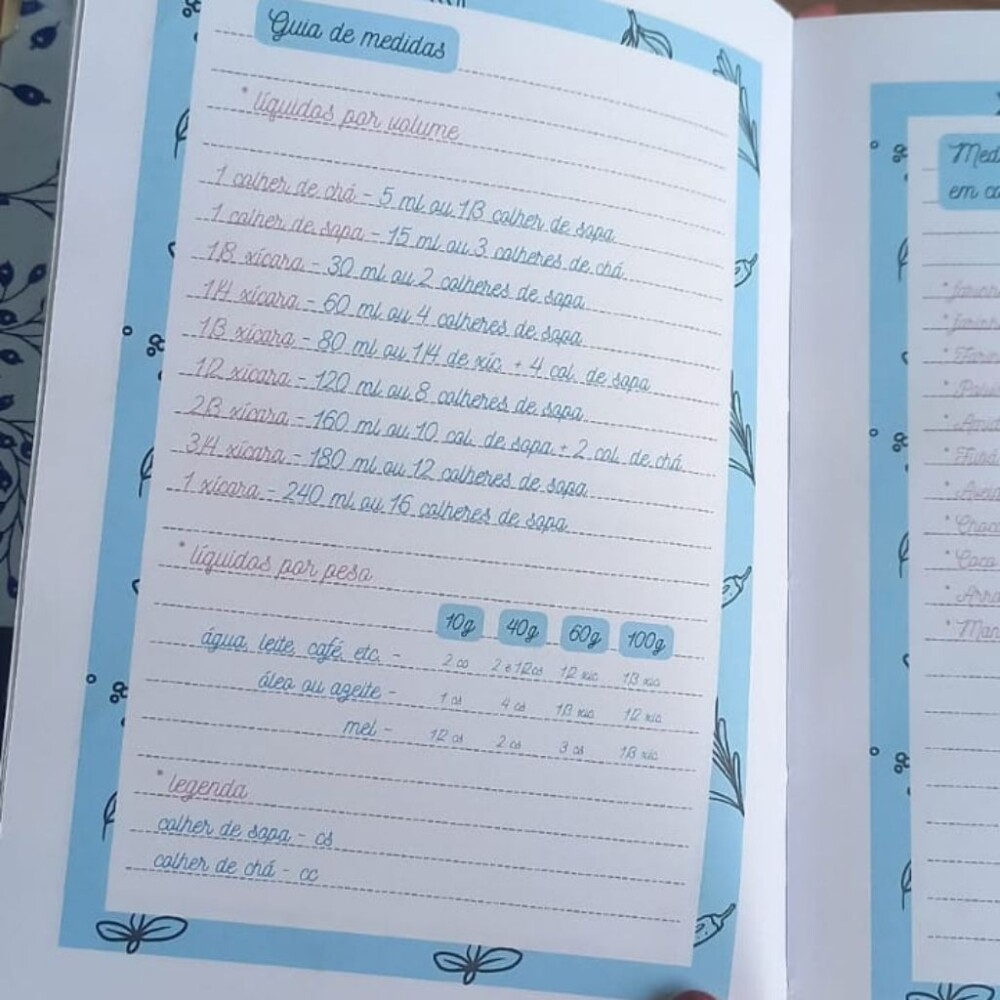 Guia de medidas
* líquidos por volume
1 colher de chá - 5 ml ou 1/3 colher de sopa
1 colher de sopa - 15 ml ou 3 colheres de chá
1/8 xícara - 30 ml ou 2 colheres de sopa
1/4 xícara - 60 ml ou 4 colheres de sopa
1/3 xícara - 80 ml ou 1/4 de xíc. + 4 col. de sopa
1/2 xícara - 120 ml ou 8 colheres de sopa
2/3 xícara - 160 ml ou 10 col. de sopa + 2 col. de chá
3/4 xícara - 180 ml ou 12 colheres de sopa
1 xícara - 240 ml ou 16 colheres de sopa
* líquidos por peso
10g 40g 60g 100g
água, leite, café, etc. - 2 cc 2 e 1/2 cs 1/2 xíc 1/3 xíc
óleo ou azeite - 1 cs 4 cs 1/3 xíc 1/2 xíc
mel - 1/2 cs 2 cs 3 cs 1/3 xíc
* legenda
colher de sopa - cs
colher de chá - cc
Med
em co
* Farin
* Amid
* Fubá
* Choc
* Caca
* Arro
* Man